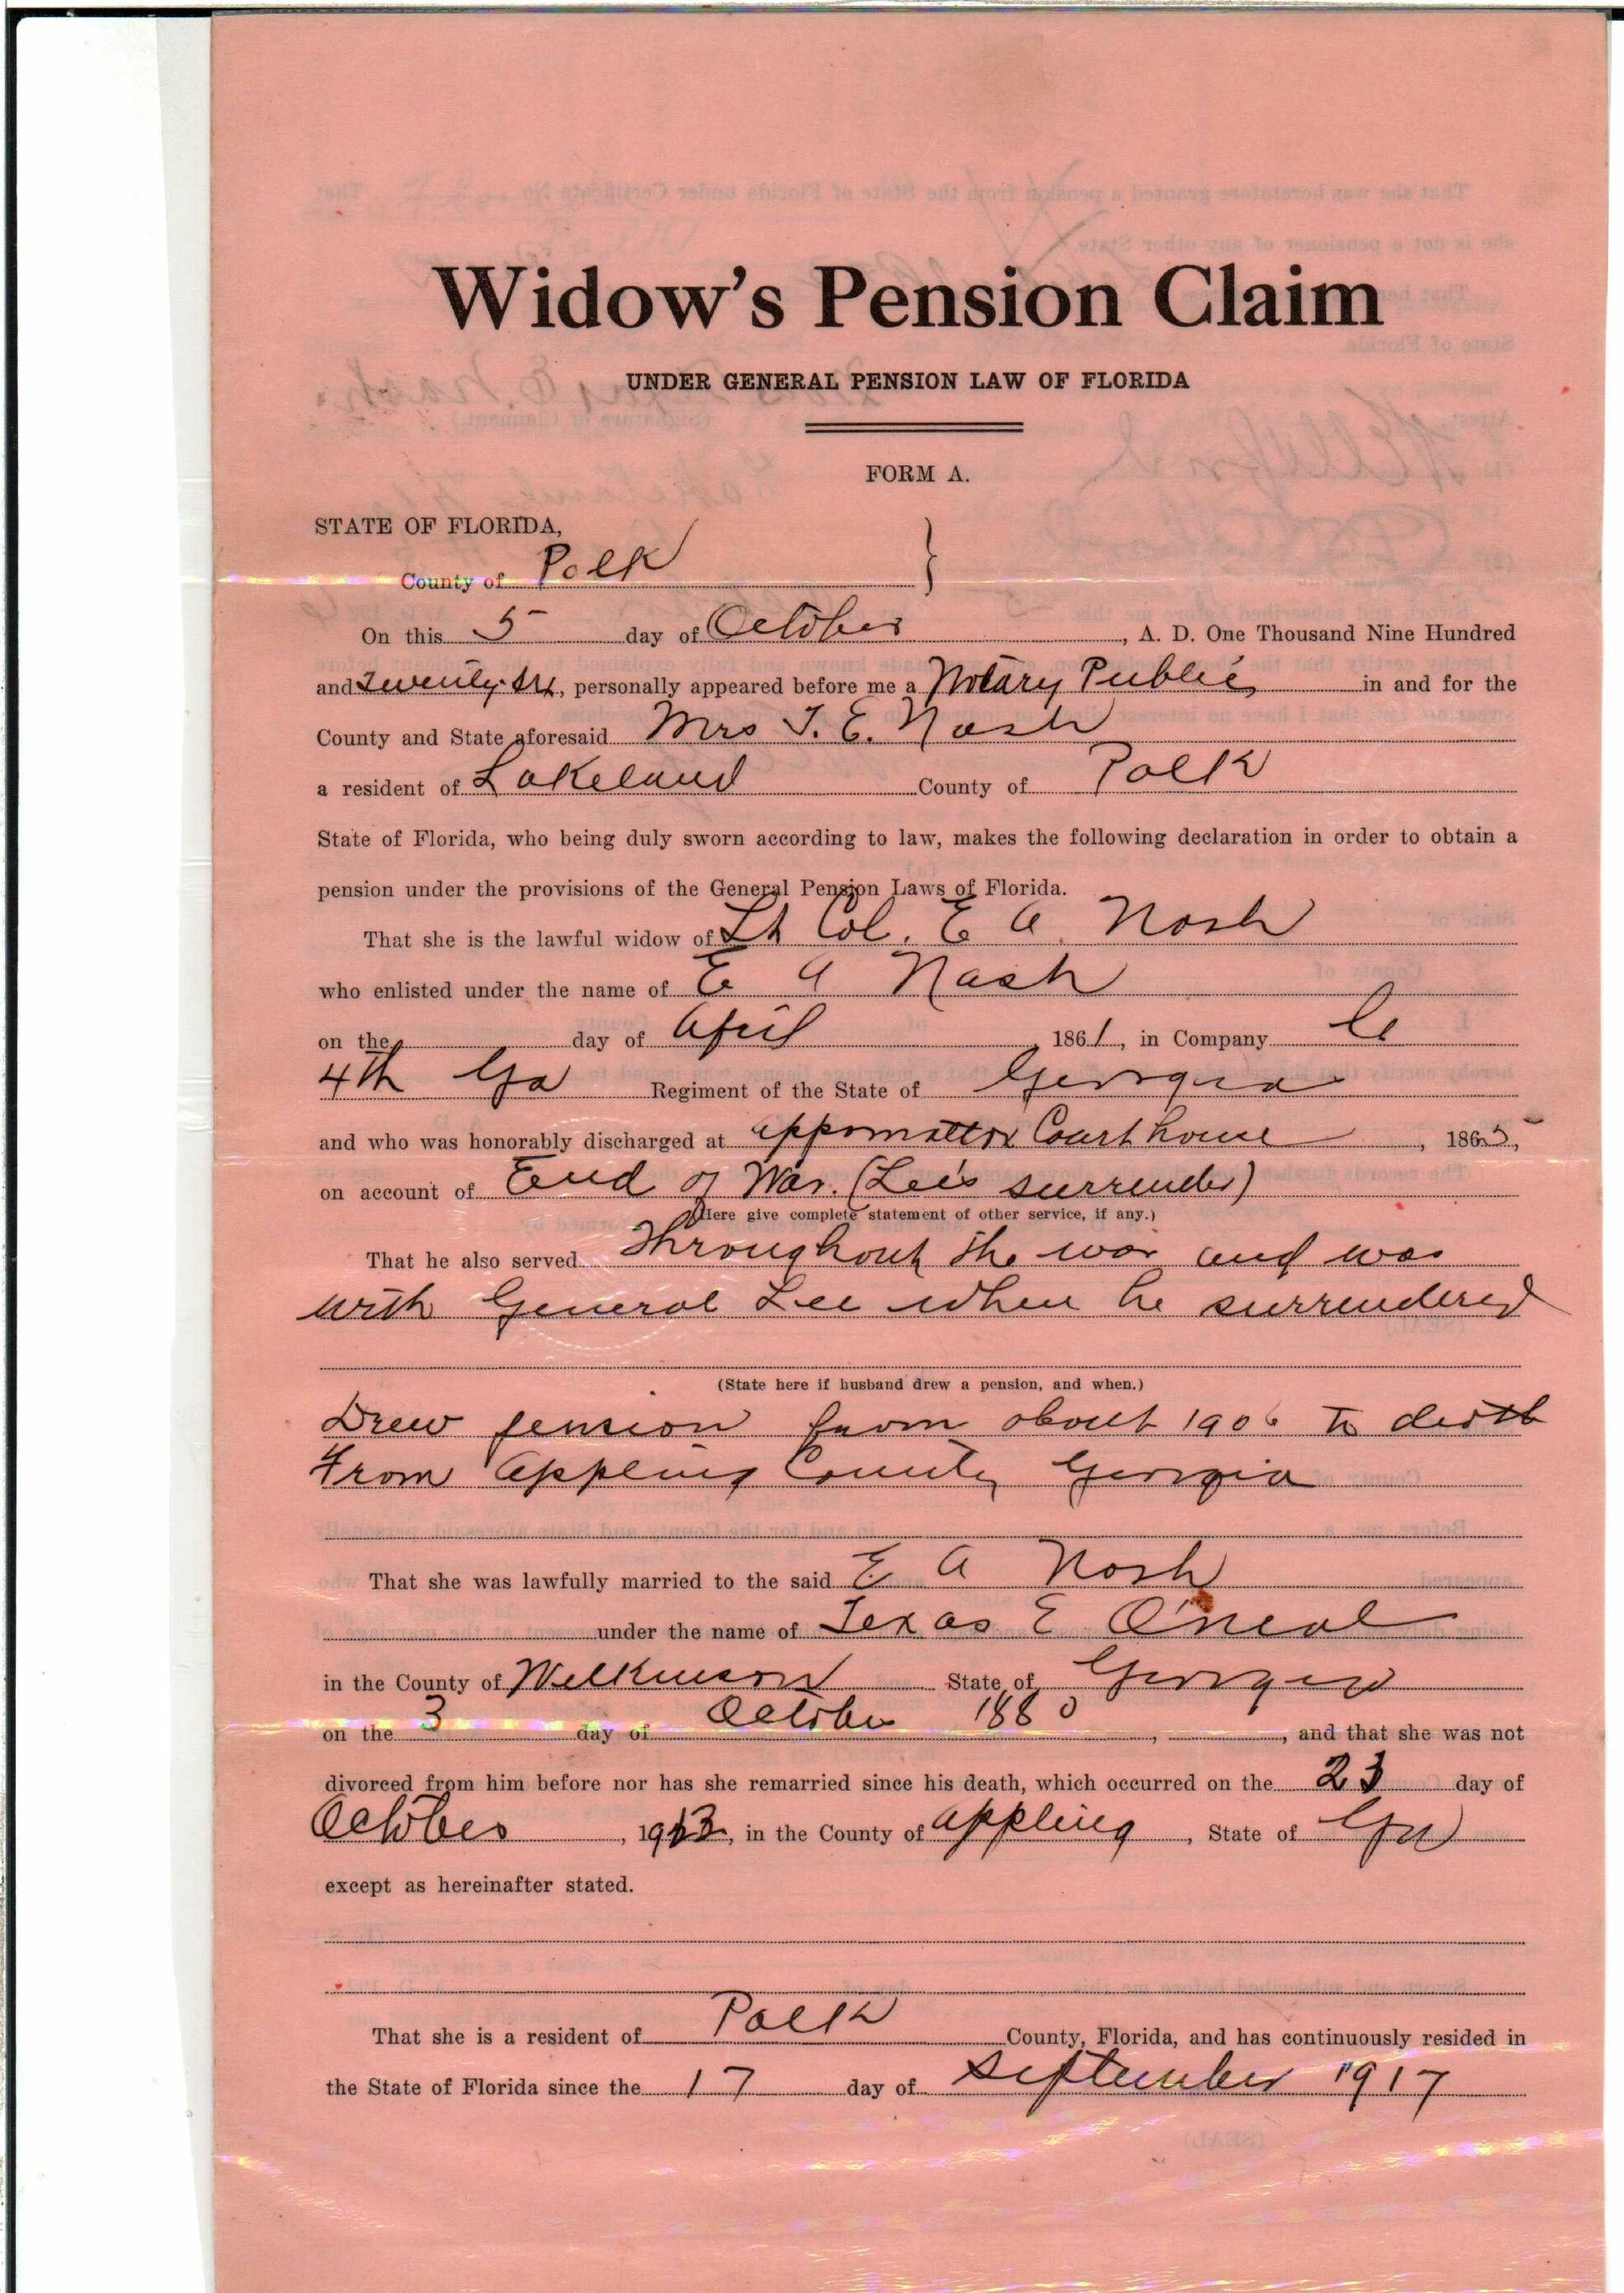 Widow's Pension Claim
UNDER GENERAL PENSION LAW OF FLORIDA
FORM A.
STATE OF FLORIDA,
County of Polk }
On this 5 day of October, A. D. One Thousand Nine Hundred
and Twenty-six, personally appeared before me a Notary Public in and for the
County and State aforesaid Mrs T. E. Nash
a resident of Lakeland County of Polk
State of Florida, who being duly sworn according to law, makes the following declaration in order to obtain a
pension under the provisions of the General Pension Laws of Florida.
That she is the lawful widow of Lt Col. E A Nash
who enlisted under the name of E A Nash
on the day of April 1861, in Company
4th Ga Regiment of the State of Georgia
and who was honorably discharged at Appomattox Courthouse, 1865,
on account of End of War. (Lee's surrender)
(Here give complete statement of other service, if any.)
That he also served Throughout the war and was
with General Lee when he surrendered
(State here if husband drew a pension, and when.)
Drew pension from about 1906 to death
From Appling County Georgia
That she was lawfully married to the said E. A Nash
under the name of Texas E O'neal
in the County of Wilkinson State of Georgia
on the 3 day of October 1880, , and that she was not
divorced from him before nor has she remarried since his death, which occurred on the 23 day of
October, 1913, in the County of Appling, State of Ga
except as hereinafter stated.
That she is a resident of Polk County, Florida, and has continuously resided in
the State of Florida since the 17 day of September 1917